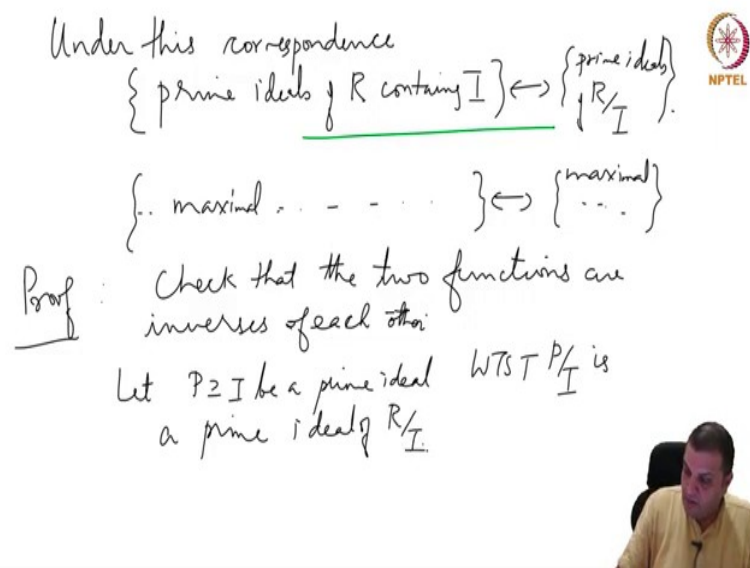 Under this correspondence
{ prime ideals of R containg I } ↔ { prime ideals of R/I }.
{ .. maximal . . - - . . . } ↔ { maximal .... }
Proof : Check that the two functions are
inverses of each other
Let P ⊇ I be a prime ideal WTST P/I is
a prime ideal of R/I.
NPTEL